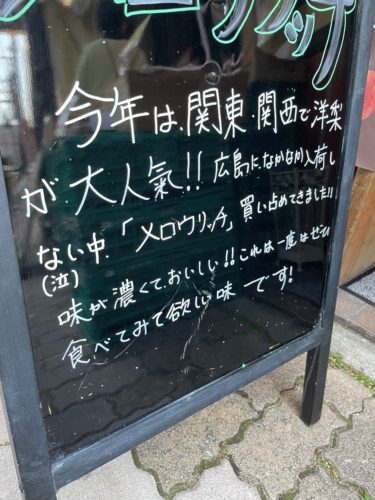 メロウリッチ
今年は関東・関西で洋梨
が大人氣!!広島にはなかなか入荷し
ない中「メロウリッチ」買い占めてきました!!
(泣)
味が濃くて、おいしい!!これは一度はぜひ
食べてみて欲しい味です!